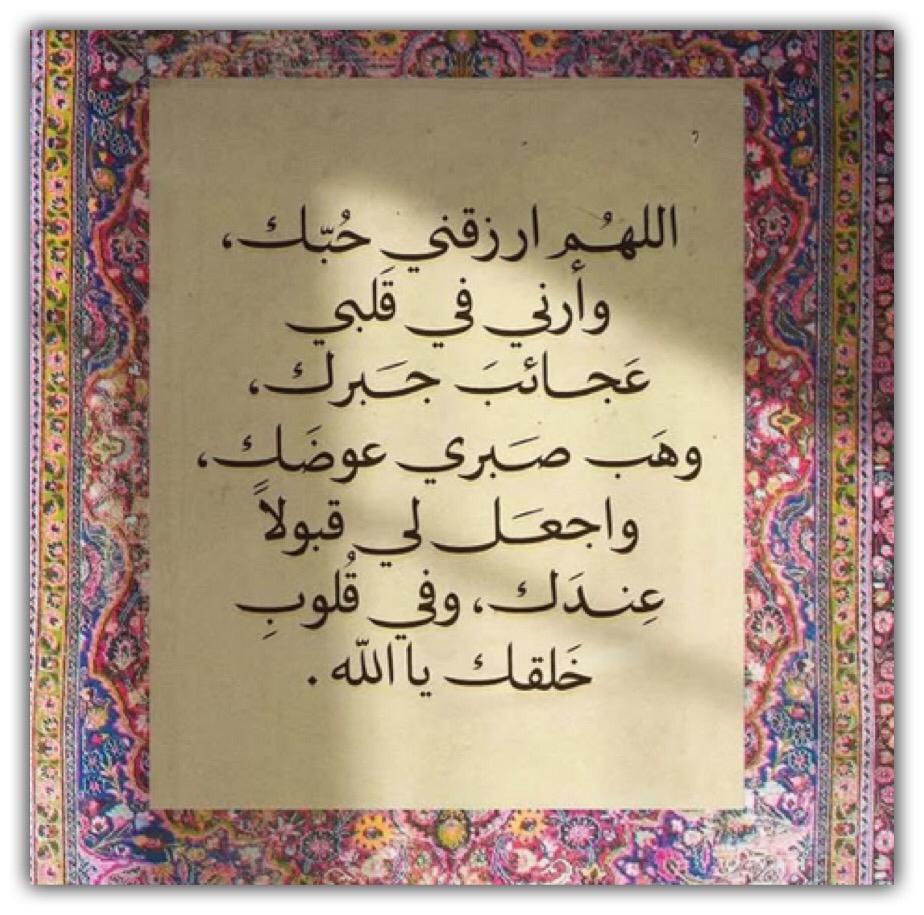 اللهُم ارزقني حُبّك،
وأرني في قَلبي
عَجائبَ جَبرك،
وهَب صَبري عوضَك،
واجعَل لي قبولاً
عِندَك، وفي قُلوبِ
خَلقك يا الله .